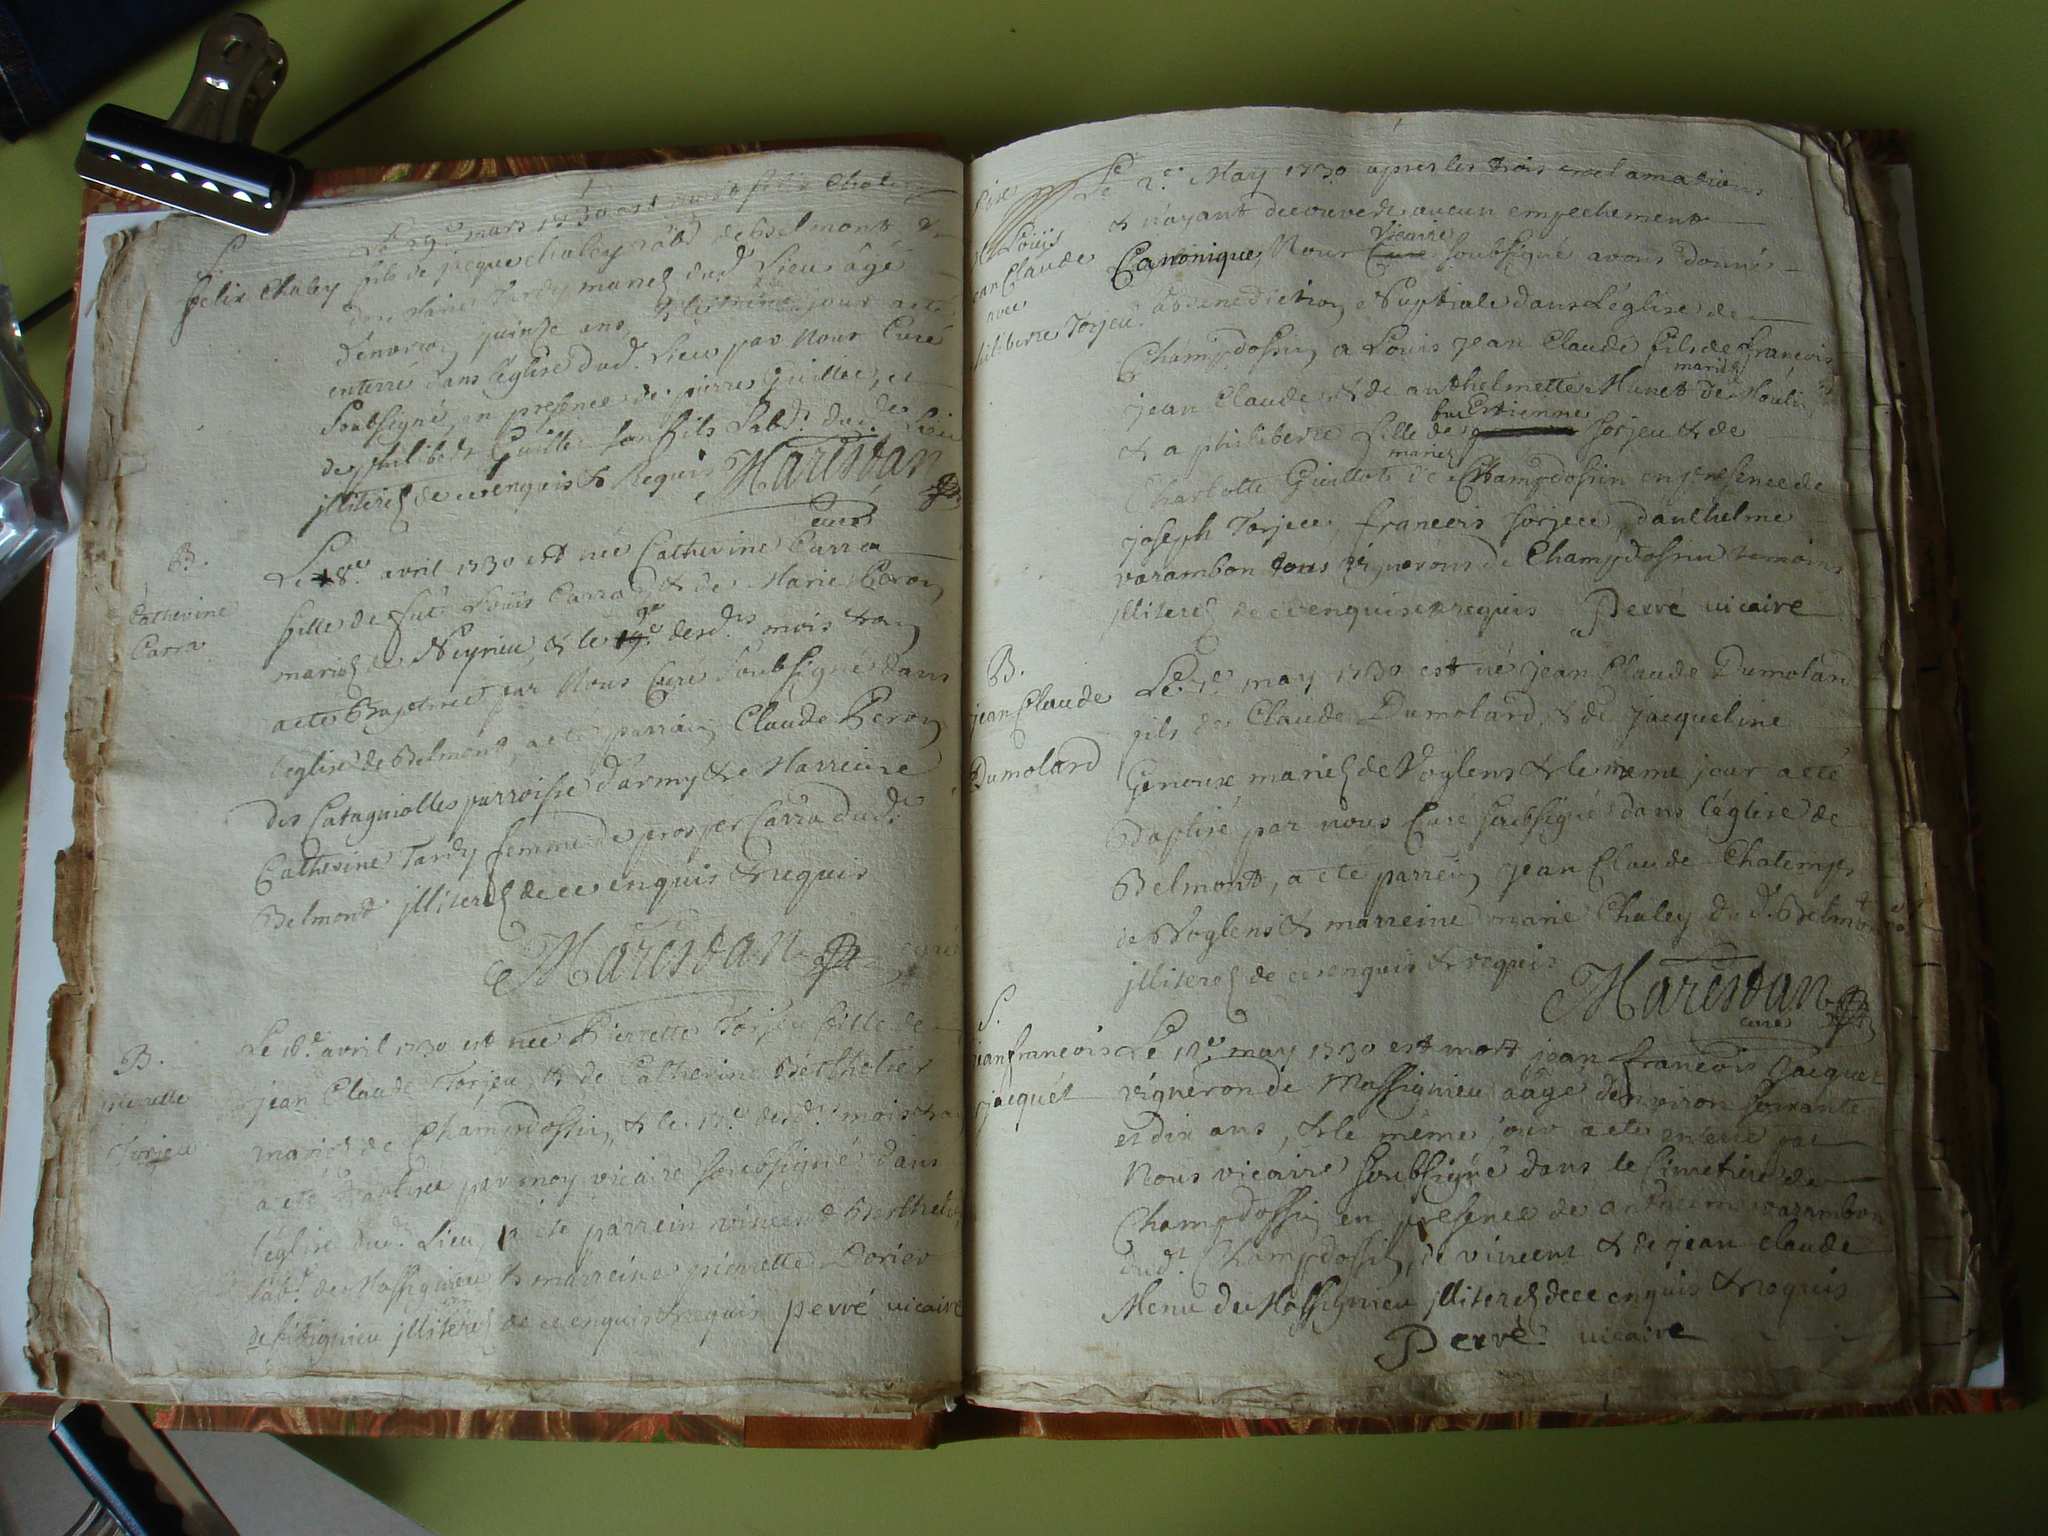 S.
felix Chaley
Le 29e mars 1730 est mort felix Chaley
fils de jacque chaley lab.r de belmont &
de Marie Tardy mariez dud.t Lieu âgé
d'environ quinze ans, & le même jour a été
enterré dans l'eglise dud.t Lieu par Nous Curé
Soubsigné, en presence de pierre Guillet, et
de philibert Guillet son fils Lab.rs dud.t Lieu
jlliterez de ce enquis & Requis Marestan
curé
B.
Catherine
Carra
Le 8e avril 1730 est née Catherine Carra
fille de fut Louïs Carra & de Marie Peron
mariez de Neyrieu, & le 9e desd.ts mois & an
a ete Baptisée par Nous Curé Soubsigné dans
l'eglise de Belmont, a ete parrain Claude Peron
des Catagniolles parroisse d'army & Marreine
Catherine Tardy femme de prosper Carra dud.t
Belmont jlliterez de ce enquis & requis
Marestan curé
B.
pierrette
Torjeu
Le 16e avril 1730 est née Pierrette Torjeu fille de
jean Claude Torjeu, & de Catherine Berthelier
mariez de Champdossin, & le 17e desd.ts mois & an
a eté Baptisée par moy vicaire soubsigné dans
l'église dud.t Lieu, a ete parrein vincent Berthelier
lab.r de Massignieu & marreine pierrette Dorier
de jlliterez de ce enquis & requis perré vicaire
Louïs
jean Claude
avec
philiberte Torjeu
Le 2e May 1730 apres les trois proclamations
& n'ayant decouvert aucun empechement
Canonique, Nous vicaire soubsigné avons donné
la benediction Nuptiale dans l'église de
Champdossin a Louïs jean Claude fils de françois
jean Claude & de anthelmette Munet mariez de
& a philiberte fille de fut Estienne Torjeu & de
Charlotte Guillot mariez de Champdossin en presence de
joseph Torjeu, françois Torjeu, d'anthelme
varambon tous vignerons de Champdossin temoins
jlliterez de ce enquis & requis Perré vicaire
B.
jean Claude
Dumolard
Le 7e may 1730 est né jean Claude Dumolard
fils de Claude Dumolard, & de jacqueline
Genoux mariez de Voglens & le meme jour a eté
Baptisé par nous Curé soubsigné dans l'église de
Belmont, a eté parrein jean Claude
de Voglens & marreine marie Chaley dud.t Belmont
jlliterez de ce enquis & requis Marestan
curé
S.
jean françois
jacquet
Le 18e may 1730 est mort jean françois Jacquet
vigneron de Massignieu aagé d'environ soixante
et dix ans, & le même jour a eté enterré par
Nous vicaire soubsigné dans le Cimetiere de
Champdossin en presence de antheme varambon
dud.t Champdossin, de vincent & de jean claude
Menu de Massignieu jlliterez de ce enquis & requis
Perré vicaire